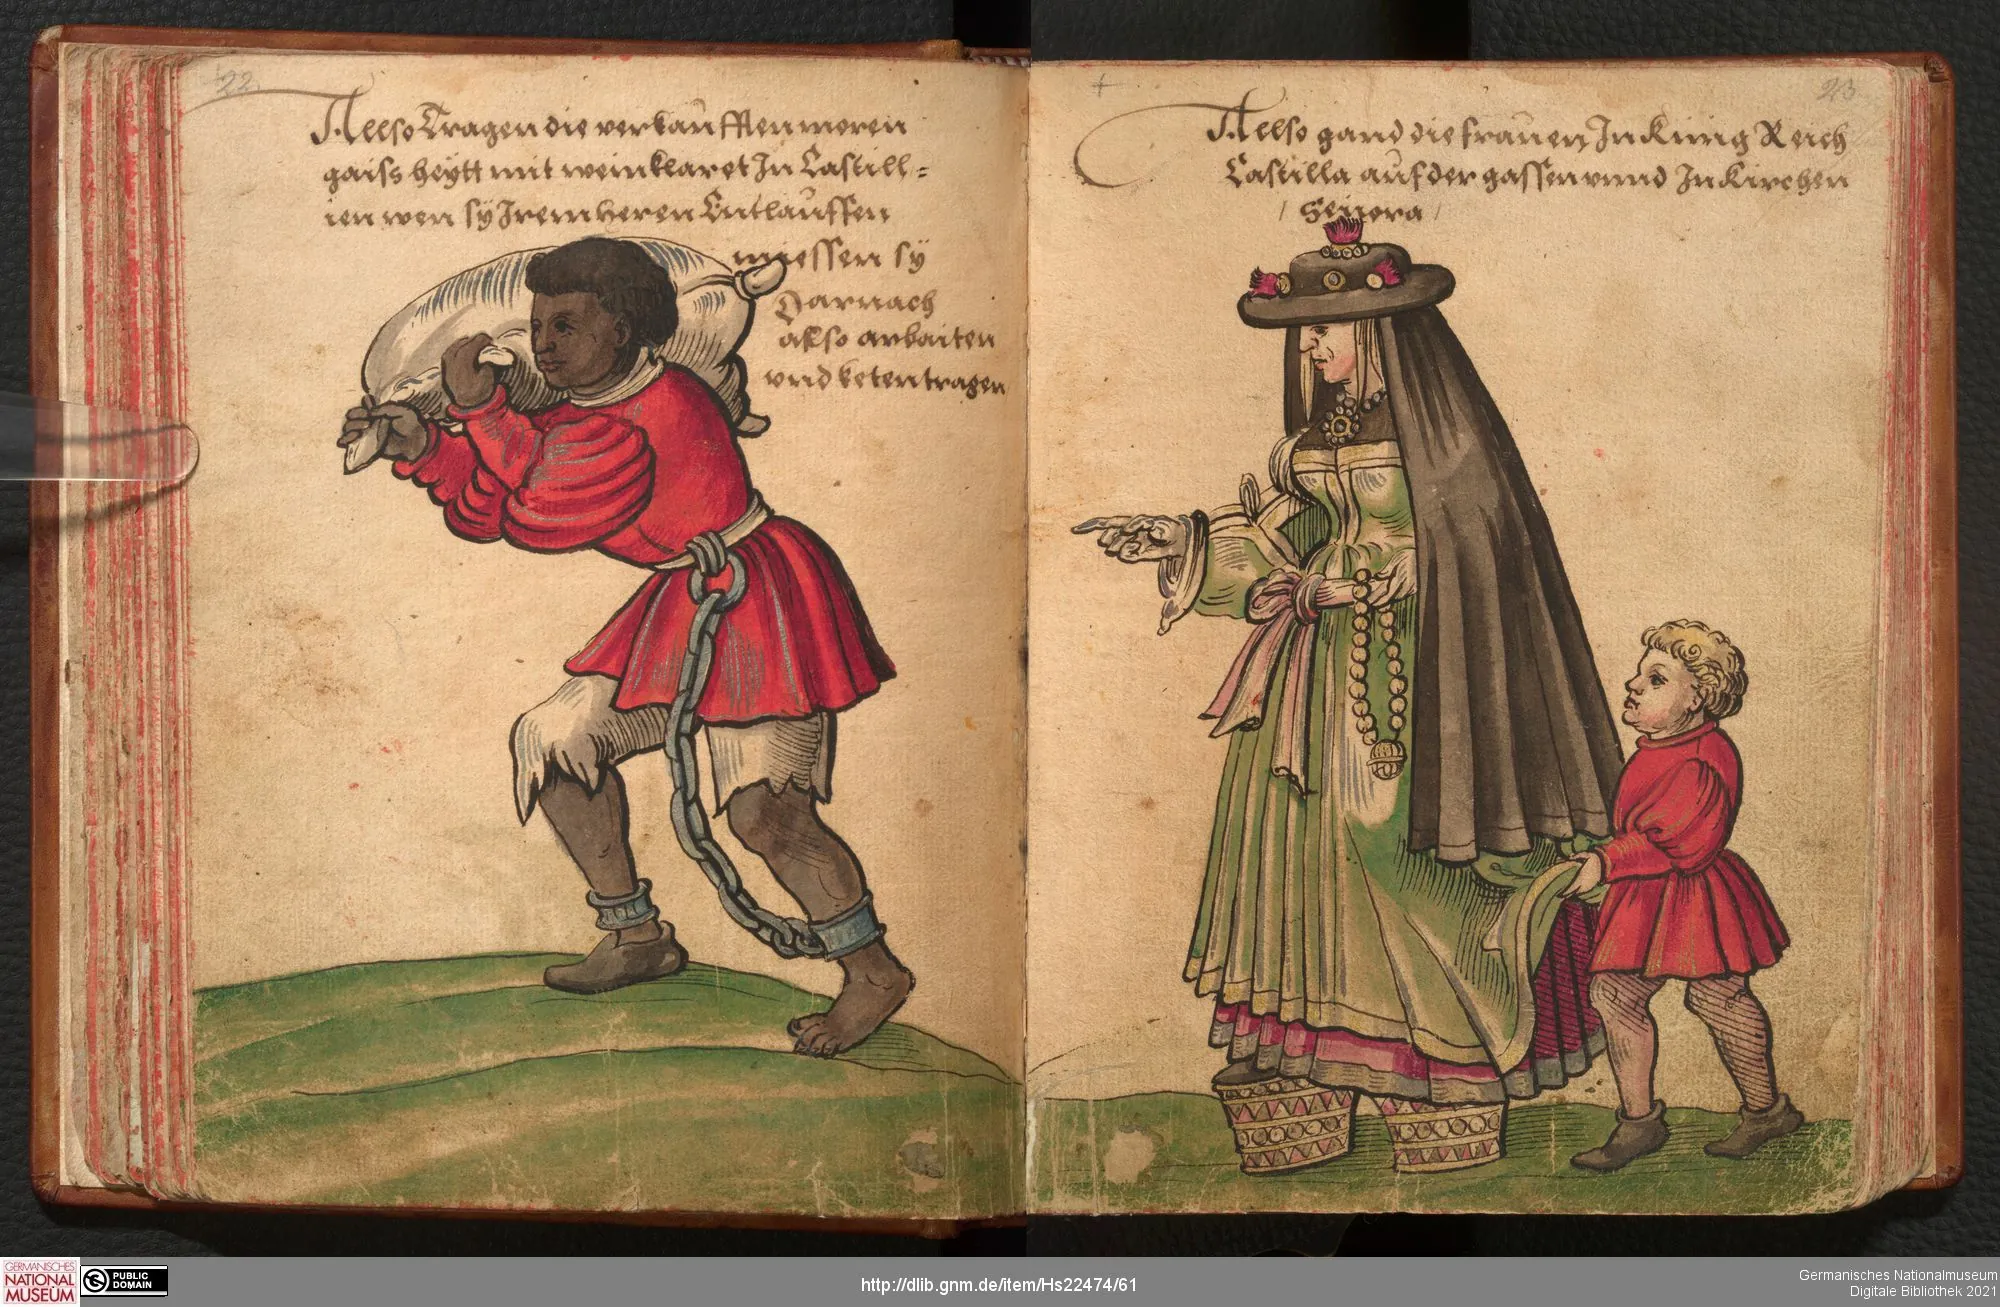 22
Allso Tragen die verkaufften moren
gaiss heytt mit wein klaret In Castill=
ien wen sy Irem heren Entlauffen
miessen sy
Darnach
also arbaiten
vnd keten tragen
23
Allso gand die frauen In Kinig Reich
Castilla auf der gassen vnnd In Kirchen
/ Seniora /
GERMANISCHES
NATIONAL
MUSEUM
PUBLIC
DOMAIN
http://dlib.gnm.de/item/Hs22474/61
Germanisches Nationalmuseum
Digitale Bibliothek 2021